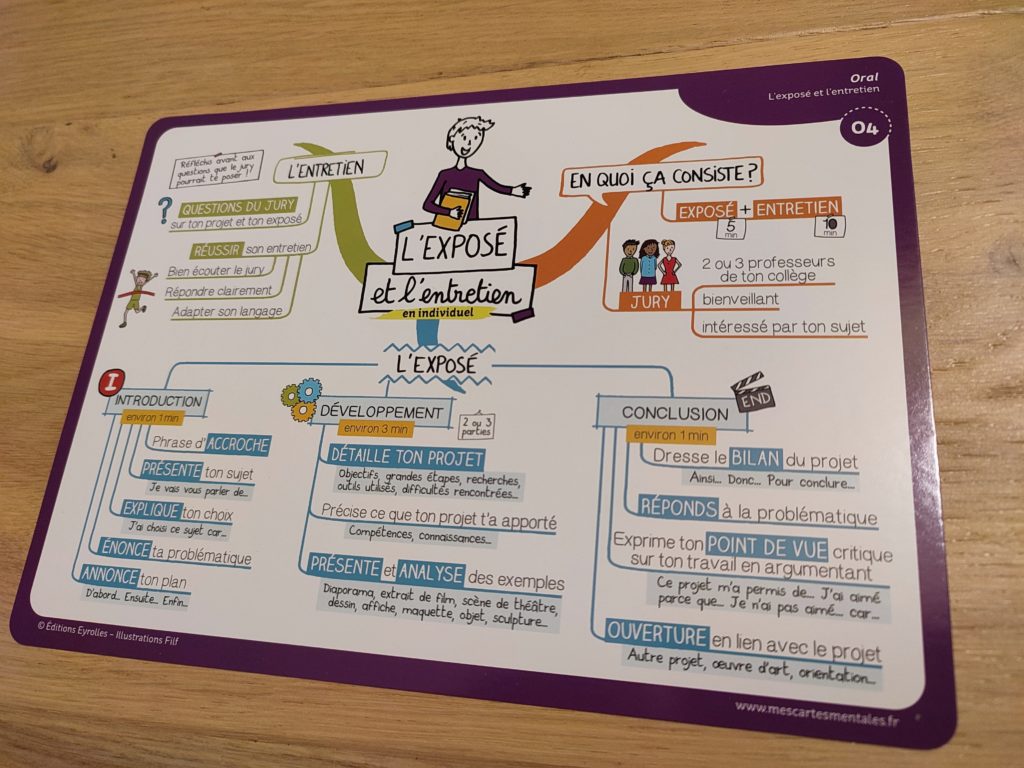 Oral
L'exposé et l'entretien
04
L'EXPOSÉ
et l'entretien
en individuel
EN QUOI ÇA CONSISTE ?
EXPOSÉ + ENTRETIEN
5
min
10
min
JURY
2 ou 3 professeurs
de ton collège
bienveillant
intéressé par ton sujet
L'ENTRETIEN
Réfléchis avant aux
questions que le jury
pourrait te poser !
?
QUESTIONS DU JURY
sur ton projet et ton exposé
RÉUSSIR son entretien
Bien écouter le jury
Répondre clairement
Adapter son langage
L'EXPOSÉ
I
INTRODUCTION
environ 1 min
Phrase d'ACCROCHE
PRÉSENTE ton sujet
Je vais vous parler de...
EXPLIQUE ton choix
J'ai choisi ce sujet car...
ÉNONCE ta problématique
ANNONCE ton plan
D'abord... Ensuite... Enfin...
DÉVELOPPEMENT
environ 3 min
2 ou 3
parties
DÉTAILLE TON PROJET
Objectifs, grandes étapes, recherches,
outils utilisés, difficultés rencontrées...
Précise ce que ton projet t'a apporté
Compétences, connaissances...
PRÉSENTE et ANALYSE des exemples
Diaporama, extrait de film, scène de théâtre,
dessin, affiche, maquette, objet, sculpture...
END
CONCLUSION
environ 1 min
Dresse le BILAN du projet
Ainsi... Donc... Pour conclure...
RÉPONDS à la problématique
Exprime ton POINT DE VUE critique
sur ton travail en argumentant
Ce projet m'a permis de... J'ai aimé
parce que... Je n'ai pas aimé... car...
OUVERTURE en lien avec le projet
Autre projet, œuvre d'art, orientation...
© Éditions Eyrolles – Illustrations Filf
www.mescartesmentales.fr